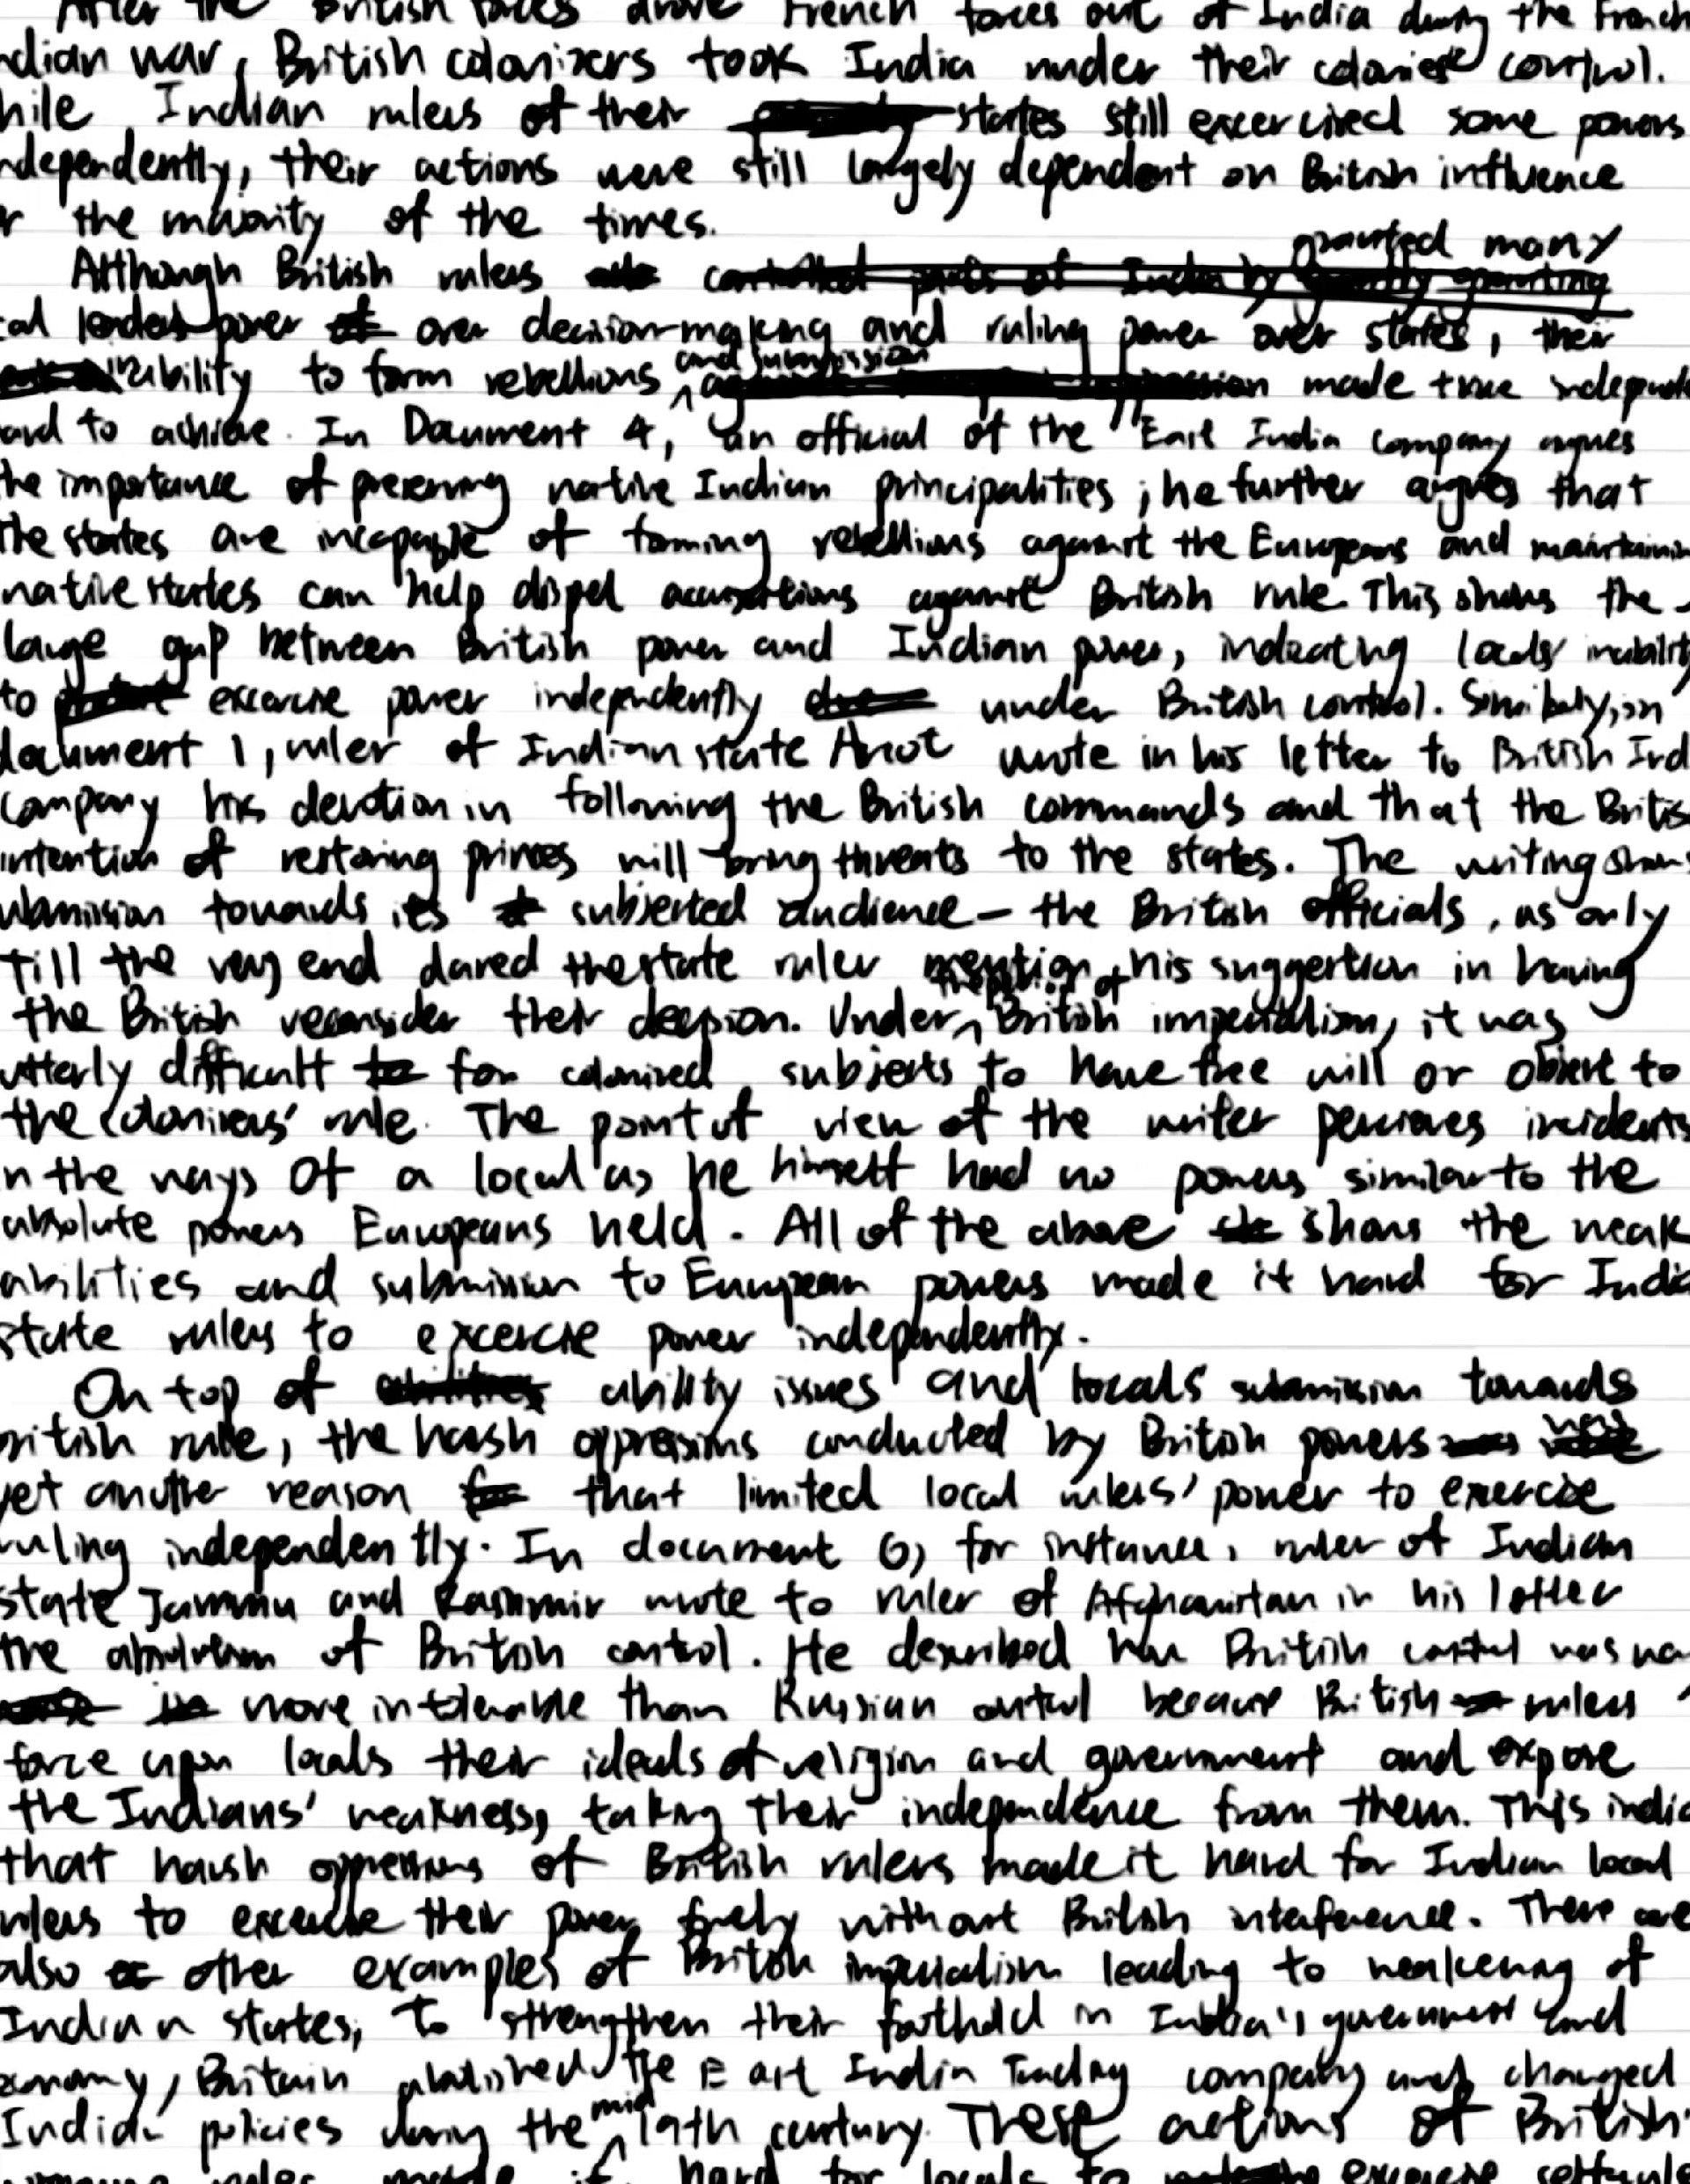 After the British forces drove French forces out of India during the French
dian war, British colonizers took India under their colonies control.
hile Indian rulers of their states still excercised some powers
dependently, their actions were still largely dependent on British influence
r the majority of the times.
granted many
Although British rulers controlled parts of India by granting
al leaders power over decision-making and ruling power over states, their
inability to form rebellions and submission made true independ
ard to achieve. In Document 4, an official of the East India Company argues
he importance of preserving native Indian principalities; he further argues that
the states are incapable of forming rebellions against the Europeans and maintainin
native states can help dispel accusations against British rule. This shows the
large gap between British power and Indian power, indicating locals' inability
to excercise power independently under British control. Similarly, in
document 1, ruler of Indian state wrote in his letter to British Ind
company his devotion in following the British commands and that the Britis
intention of restoring princes will bring threats to the states. The writing shows
ubmission towards its subjected audience - the British officials, as only
till the very end dared the state ruler mention his suggestion in having
the British reconsider their decision. Under British imperialism, it was
utterly difficult for colonized subjects to have free will or object to
the colonizers' rule. The point of view of the writer perceives incidents
n the ways of a local as he himself had no powers similar to the
absolute powers Europeans held. All of the above shows the weak
abilities and submission to European powers made it hard for India
state rulers to excercise power independently.
On top of abilities ability issues and locals submission towards
ritish rule, the harsh oppressions conducted by British powers was
yet another reason for that limited local rulers' power to exercise
ruling independently. In document 6, for instance, ruler of Indian
state Jammu and Kashmir wrote to ruler of Afghanistan in his letter
the absolutism of British control. He described how British control was
more intolerable than Russian control because British rulers
force upon locals their ideals of religion and government and expose
the Indians' weakness, taking their independence from them. This indic
that harsh oppressions of British rulers made it hard for Indian local
rulers to excercise their power freely without British interference. There are
also other examples of British imperialism leading to weakening of
Indian states, to strengthen their foothold in India's government and
conomy, Britain abolished the East India Trading company and changed
Indian policies during the mid 19th century. These actions of British
made it hard for locals to exercise